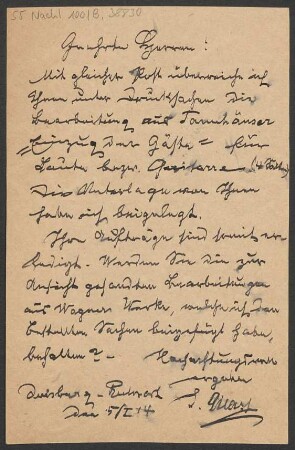 55 Nachl 100/B, 38730
Geehrte Herren:
Mit gleicher Post überreiche ich
Ihnen unter Drucksachen die
Bearbeitung aus Tannhäuser
"Einzug der Gäste" für
Laute bezw. Guitarre
Die Unterlage von Ihnen
habe ich beigelegt.
Ihre Aufträge sind somit er-
ledigt. Werden Sie die zur
Ansicht gesandten Bearbeitungen
aus Wagners Werke, welche ich den
bestellten Sachen beigefügt habe,
behalten? - Hochachtungsvoll
ergeben
Duisburg-Ruhrort
den 5/I 14